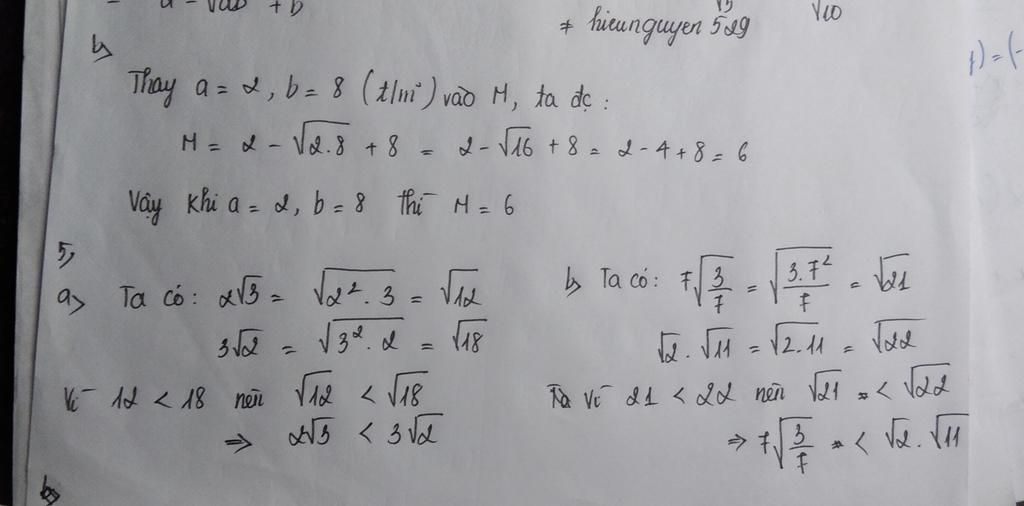 a - √ab + b
√3
√10
* hieunguyen 529
1) = (-
b,
Thay a = 2, b = 8 (t/m²) vào M, ta đc :
M = 2 - √2.8 + 8 = 2 - √16 + 8 = 2 - 4 + 8 = 6
Vậy khi a = 2, b = 8 thì M = 6
5,
a, Ta có: 2√3 = √2² . 3 = √12
3√2 = √3² . 2 = √18
Vì 12 < 18 nên √12 < √18
⇒ 2√3 < 3√2
b, Ta có: 7√3/7 = √3.7²/7 = √21
√2 . √11 = √2.11 = √22
Vì 21 < 22 nên √21 < √22
⇒ 7√3/7 < √2 . √11